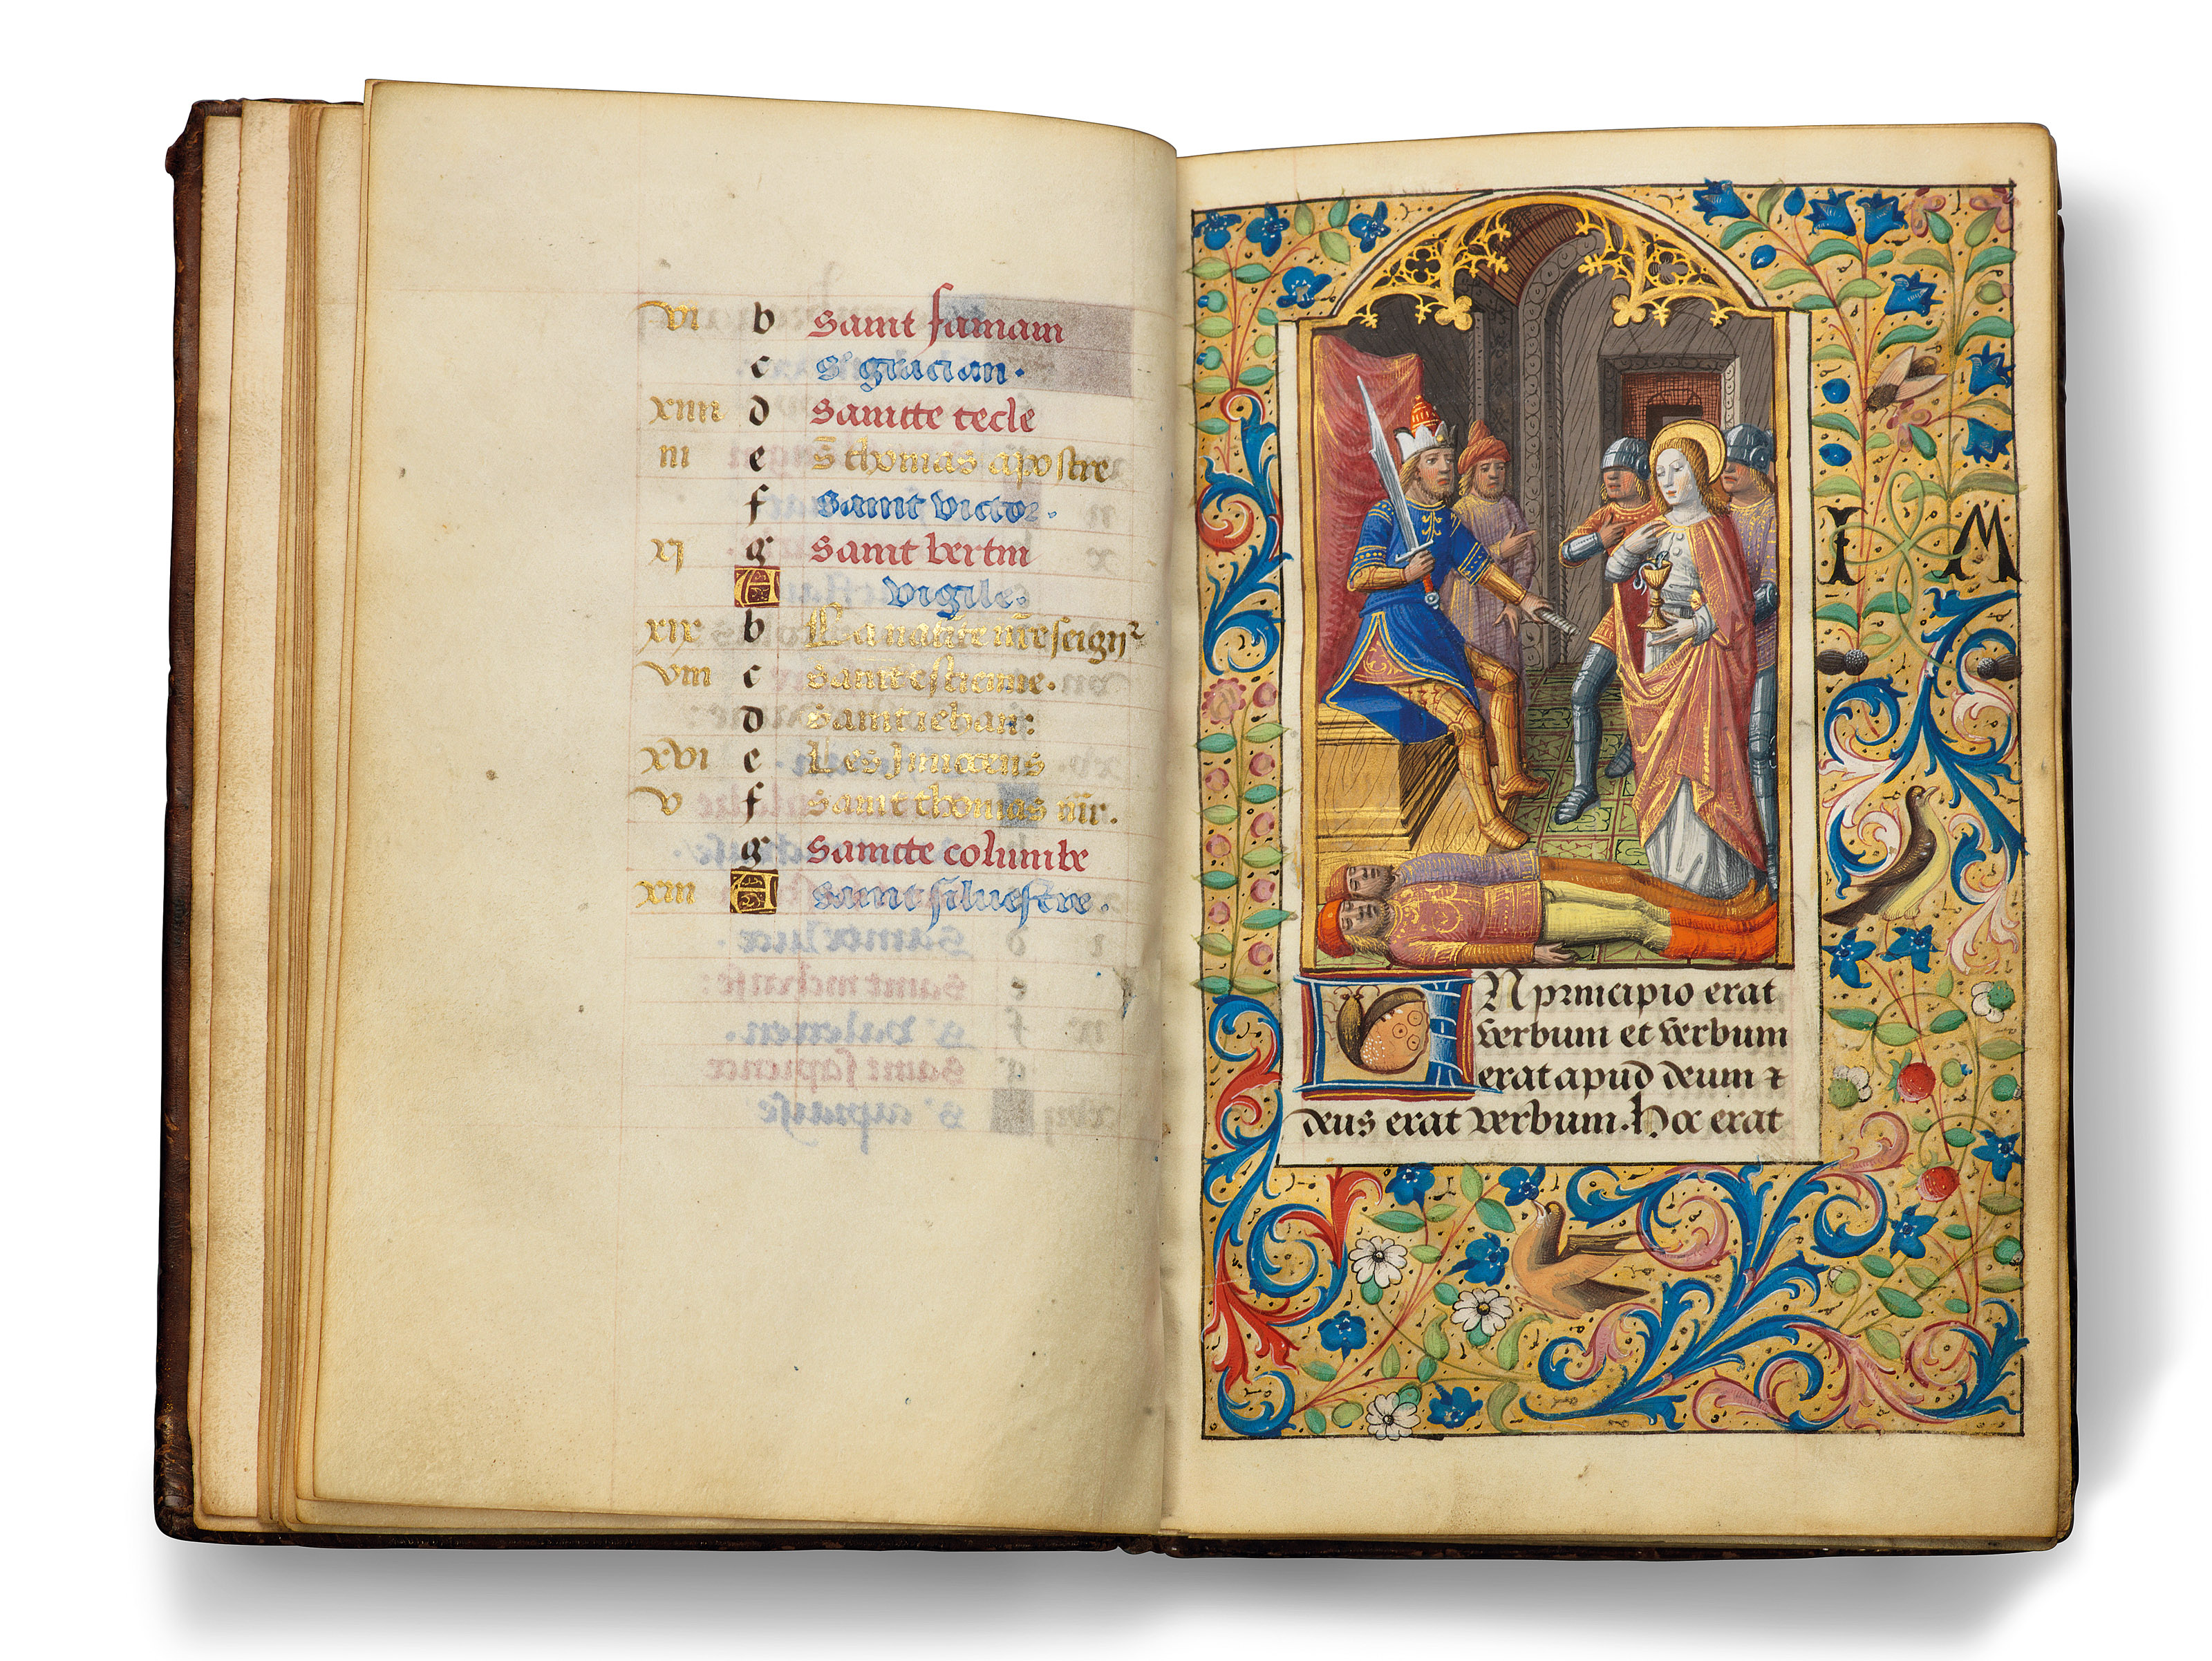 vi b saint samain
c s' gracian.
xiiii d saincte tecle
iii e s̄ thomas apostre
f saint victor.
xj g saint bertin
A vigile.
xix b La natiᵗe nr̄e seignʳ
viii c saint estienne.
d saint iehan:
xvi e Les Innocens
v f saint thomas mr̄.
g saincte columbe
xiii A saint siluestre.
I M
IN principio erat
verbum et verbum
erat apud deum ⁊
deus erat verbum. Hoc erat